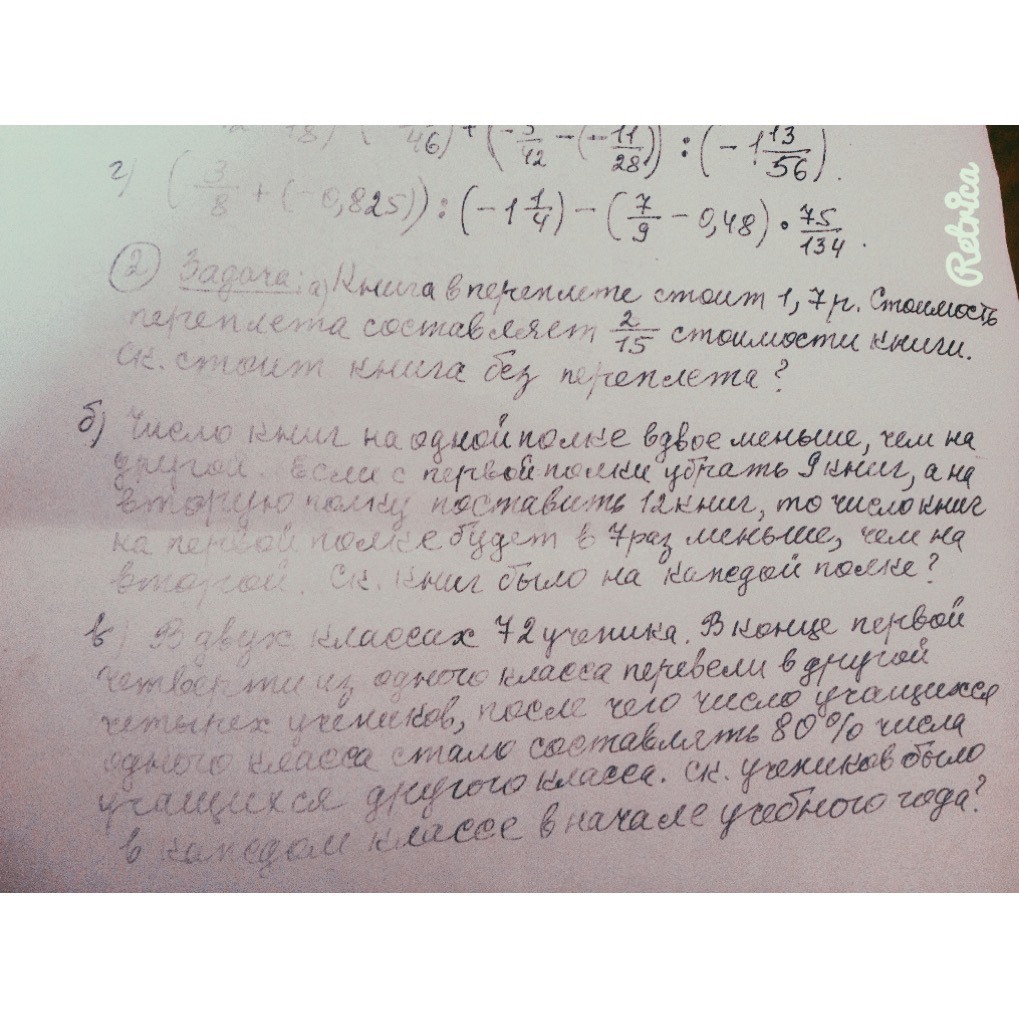 46) + (- 5/42 - (- 11/28)) : (- 1 13/56).
г) (3/8 + (- 0,825)) : (- 1 1/4) - (7/9 - 0,48) • 75/134.
2 Задача: а) Книга в переплете стоит 1,7 р. Стоимость
переплета составляет 2/15 стоимости книги.
Ск. стоит книга без переплета?
б) Число книг на одной полке вдвое меньше, чем на
другой. Если с первой полки убрать 9 книг, а на
вторую полку поставить 12 книг, то число книг
на первой полке будет в 7 раз меньше, чем на
второй. Ск. книг было на каждой полке?
в) В двух классах 72 ученика. В конце первой
четверти из одного класса перевели в другой
четырех учеников, после чего число учащихся
одного класса стало составлять 80% числа
учащихся другого класса. Ск. учеников было
в каждом классе в начале учебного года?
Retrica